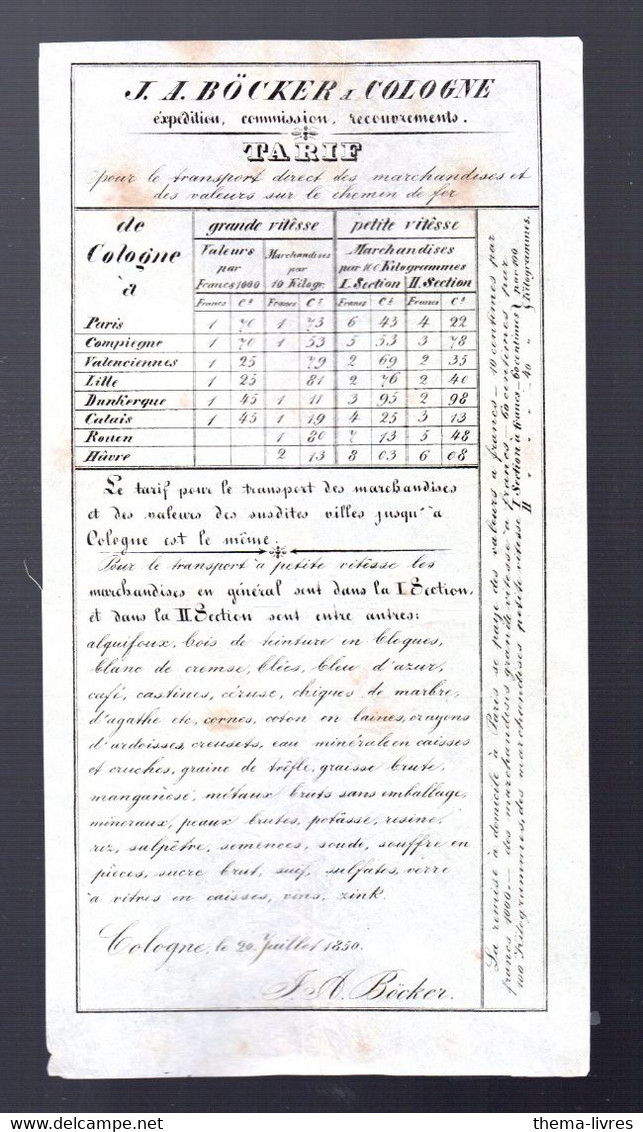 J. A. BÖCKER à COLOGNE
éxpédition, commission, recouvrements.
TARIF
pour le transport direct des marchandises et
des valeurs sur le chemin de fer
de Cologne à | grande vitêsse | petite vitêsse
Valeurs par Francs 1000 | Marchandises par 10 Kilogr. | Marchandises par 100 Kilogrammes
I. Section | II. Section
Francs | Cs | Francs | Cs | Francs | Cs | Francs | Cs
Paris 1 70 1 73 6 43 4 22
Compiegne 1 70 1 53 5 53 3 78
Valenciennes 1 25 79 2 69 2 35
Lille 1 25 81 2 76 2 40
Dunkerque 1 45 1 11 3 95 2 98
Calais 1 45 1 19 4 25 3 13
Rouen 1 80 7 13 5 48
Hâvre 2 13 8 03 6 08
Le tarif pour le transport des marchandises
et des valeurs des susdites villes jusqu'à
Cologne est le même.
Pour le transport à petite vitêsse les
marchandises en général sont dans la I Section,
et dans la II Section sont entre autres:
alquifoux, bois de teinture en bloques,
blanc de cremse, blées, bleu d'azur,
café, castines, céruse, chiques de marbre,
d'agathe etc, cornes, coton en laines, crayons
d'ardoisses, creusets, eau minérale en caisses
et cruches, graine de trêfle, graisse brute,
manganèse, métaux bruts sans emballage,
mineraux, peaux brutes, potâsse, resine,
riz, salpêtre, semences, soude, souffre en
pièces, sucre brut, suif, sulfates, verre
à vitres en caisses, vins, zink.
Cologne, le 20 Juillet 1850.
J. A. Böcker.
La remise à domicile à Paris se paye des valeurs à francs — 10 centimes par
francs 1000 — des marchandises grande vitêsse à francs — 60 centimes par
100 Kilogrammes, des marchandises petite vitesse I Section à francs — 60 centimes } par 100
II " " " — 40 " } Kilogrammes.
thema-livres